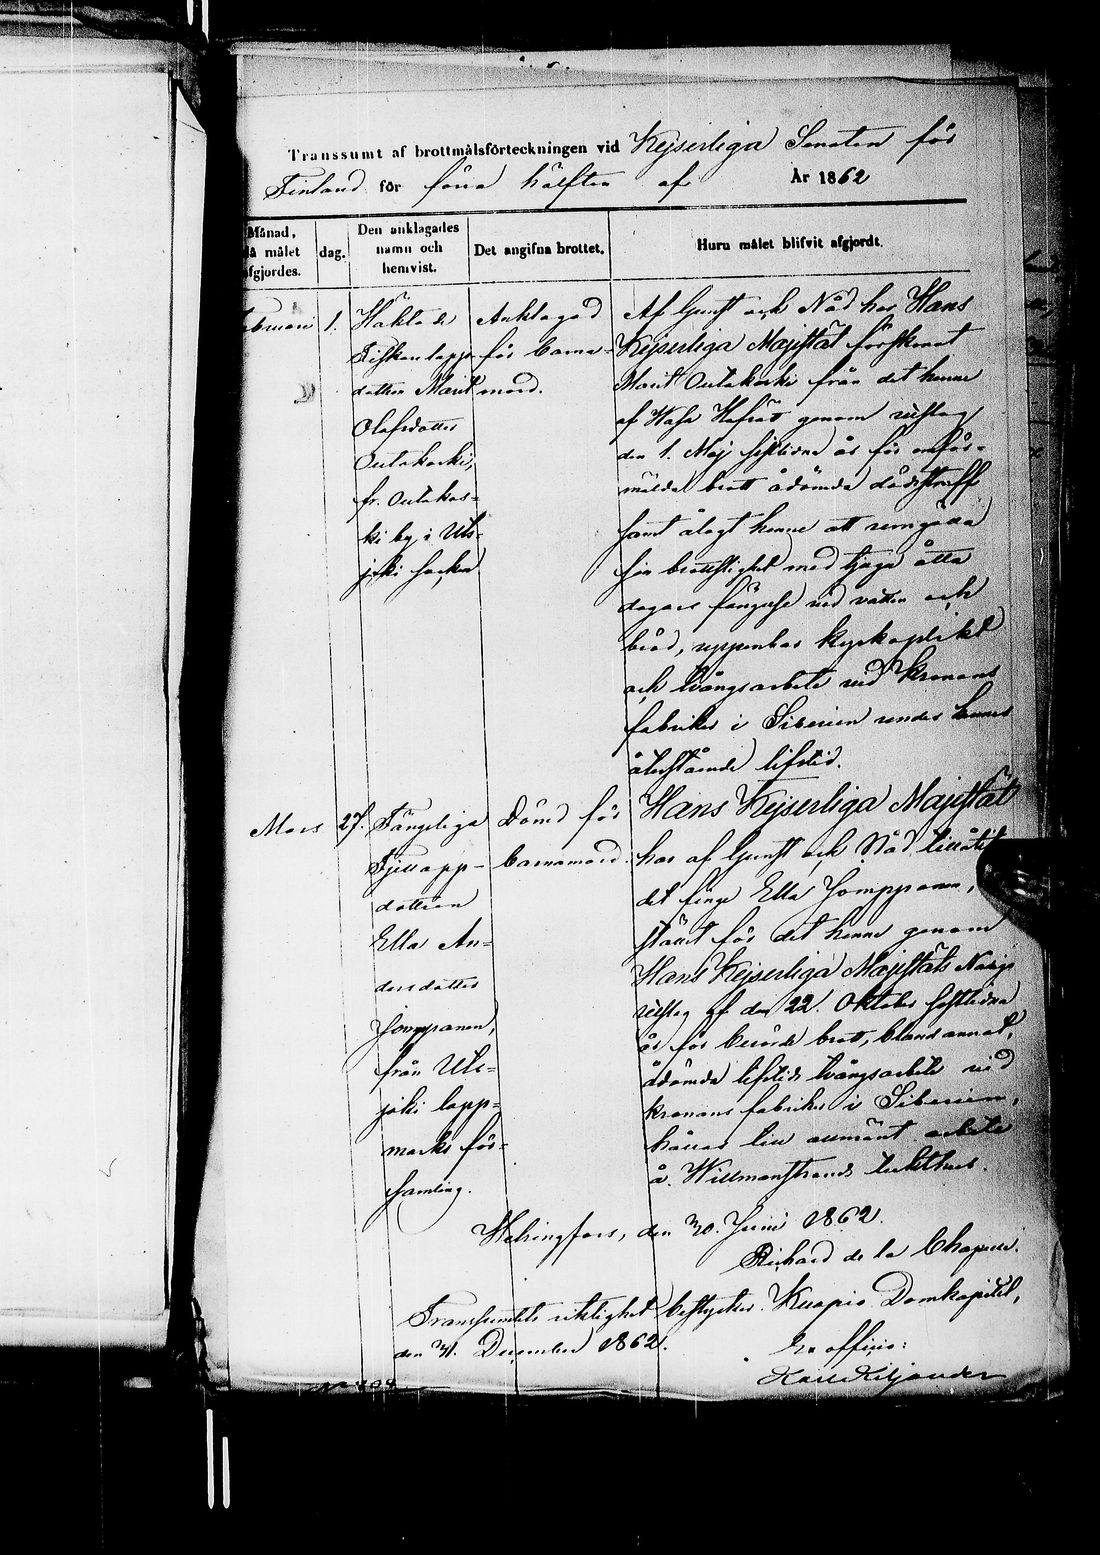 Transsumt af brottmålsförteckningen vid Kejserliga Senaten för
Finland för förra hälften af År 1862
Månad, då målet afgjordes.
dag.
Den anklagades namn och hemvist.
Det angifna brottet.
Huru målet blifvit afgjordt.
Februari 1.
Häktade
Fiskarlapp-
dottren Marit
Olofsdotter
Outakoski,
fr. Outakos-
ki by i Uts-
joki socken
Anklagad
för barna-
mord.
Af Gunst och Nåd har Hans
Kejserliga Majestät förskonat
Marit Outakoski från det henne
af Wasa Hofrätt genom utslag
den 1. Maj sistlidne år för omför-
mälda brott ådömda dödsstraff
samt ålagt henne att umgälla
sin brottslighet med tjugu åtta
dagars fängelse vid vatten och
bröd, uppenbar kyrkoplikt
och tvångsarbete vid kronans
fabriker i Siberien under hennes
återstående lifstid.
Mars 27.
Fängsliga
Fjellapp-
dottren
Ella An-
dersdotter
Jomppanen,
från Uts-
joki lapp-
marks för-
samling.
Dömd för
barnamord.
Hans Kejserliga Majestät
har af Gunst och Nåd tillåtit
det finge Ella Jomppanen,
i stället för det henne genom
Hans Kejserliga Majestäts Nådiga
utslag af den 22. Oktober sistlidne
år för berörde brott, bland annat,
ådömda lifstids tvångsarbete vid
kronans fabriker i Siberien,
hållas till allmänt arbete
å Willmanstrands tukthus.
Helsingfors, den 30. Juni 1862.
Richard de la Chapelle.
Transsumtets riktighet bestyrker. Kuopio Domkapitel,
den 31. December 1862.
Ex officio:
Karl Kiljander